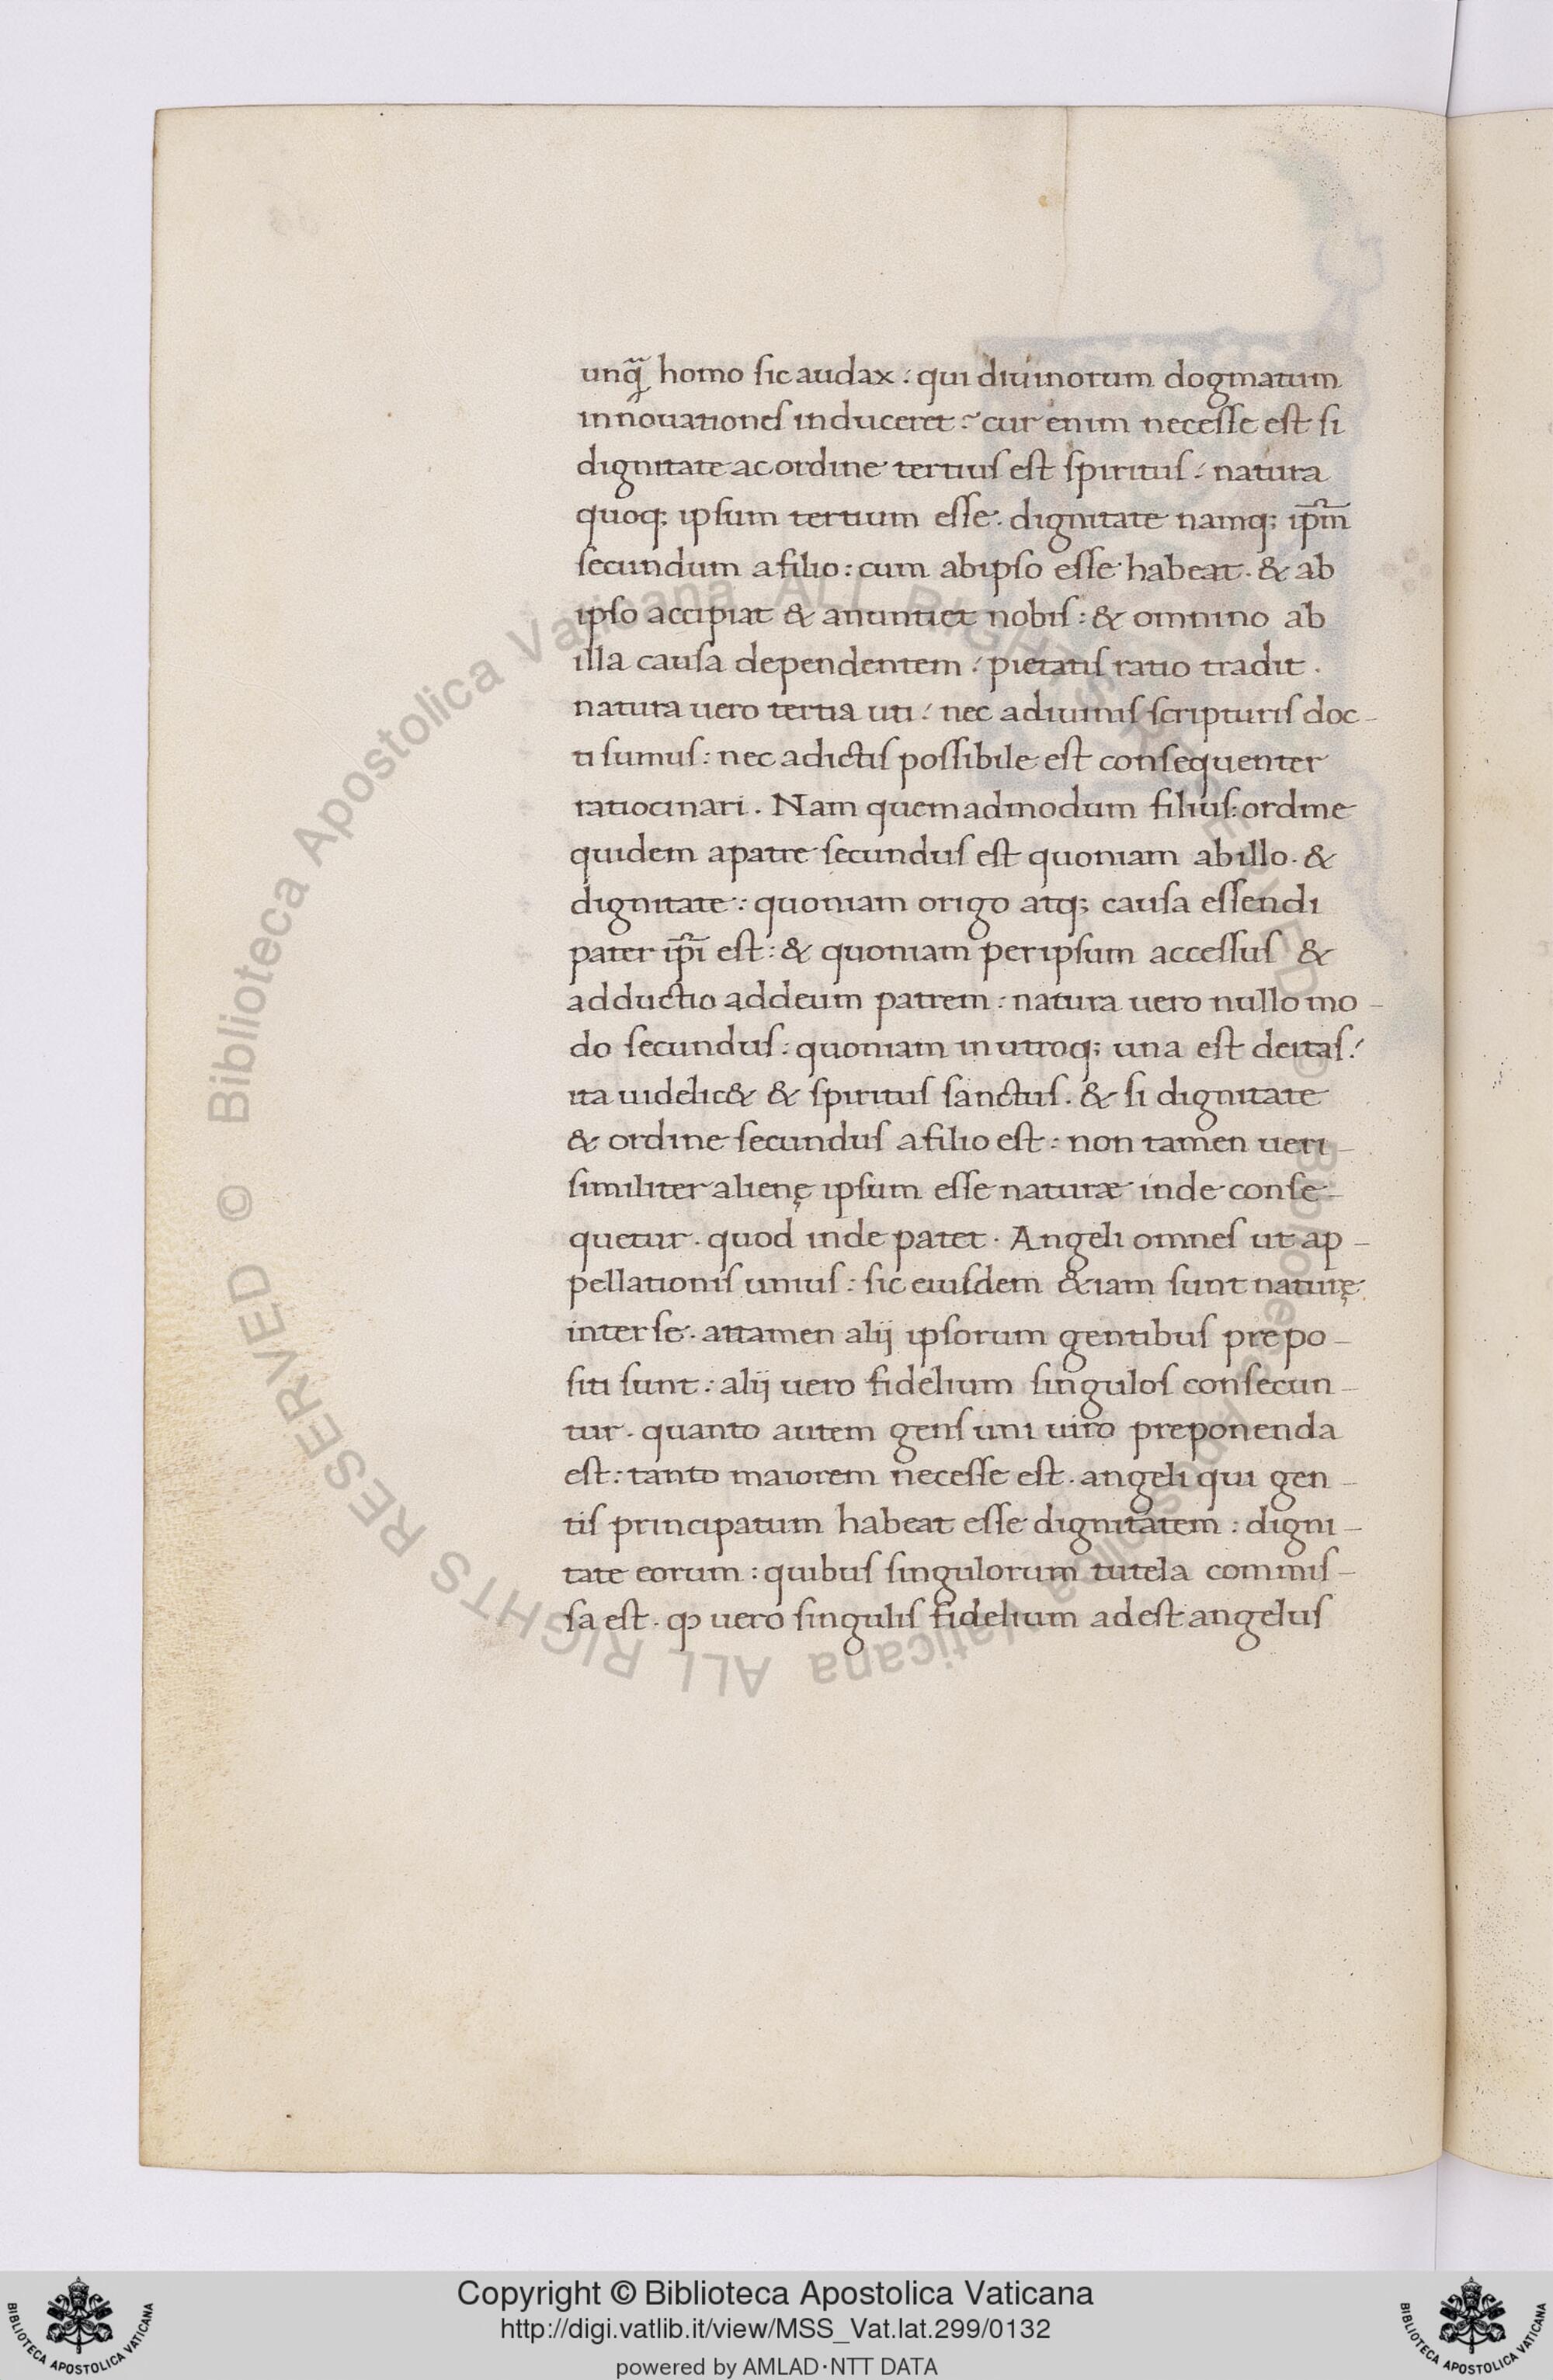 unq̃ homo sic audax: qui diuinorum dogmatum
innouationes induceret: cur enim necesse est si
dignitate ac ordine tertius est spiritus: natura
quoq; ipsum tertium esse. dignitate namq; ip̃m
secundum a filio: cum ab ipso esse habeat. & ab
ipso accipiat & anuntiet nobis: & omnino ab
illa causa dependentem: pietatis ratio tradit.
natura uero tertia uti: nec a diuinis scripturis doc-
ti sumus: nec a dictis possibile est consequenter
ratiocinari. Nam quemadmodum filius: ordine
quidem a patre secundus est quoniam ab illo. &
dignitate: quoniam origo atq; causa essendi
pater ip̃i est: & quoniam per ipsum accessus &
adductio ad deum patrem: natura uero nullo mo-
do secundus: quoniam in utroq; una est deitas:
ita uidelic& & spiritus sanctus. & si dignitate
& ordine secundus a filio est: non tamen ueri-
similiter alienę ipsum esse naturæ inde conse-
quetur. quod inde patet. Angeli omnes ut ap-
pellationis unius: sic eiusdem &iam sunt naturę
inter se. attamen alij ipsorum gentibus prepo-
siti sunt: alij uero fidelium singulos consecun-
tur. quanto autem gens uni uiro preponenda
est: tanto maiorem necesse est. angeli qui gen-
tis principatum habeat esse dignitatem: digni-
tate eorum: quibus singulorum tutela commis-
sa est. ꝙ uero singulis fidelium adest angelus
© Biblioteca Apostolica Vaticana ALL RIGHTS RESERVED © Biblioteca Apostolica Vaticana ALL RIGHTS RESERVED
Copyright © Biblioteca Apostolica Vaticana
http://digi.vatlib.it/view/MSS_Vat.lat.299/0132
powered by AMLAD·NTT DATA
BIBLIOTECA APOSTOLICA VATICANA
BIBLIOTECA APOSTOLICA VATICANA